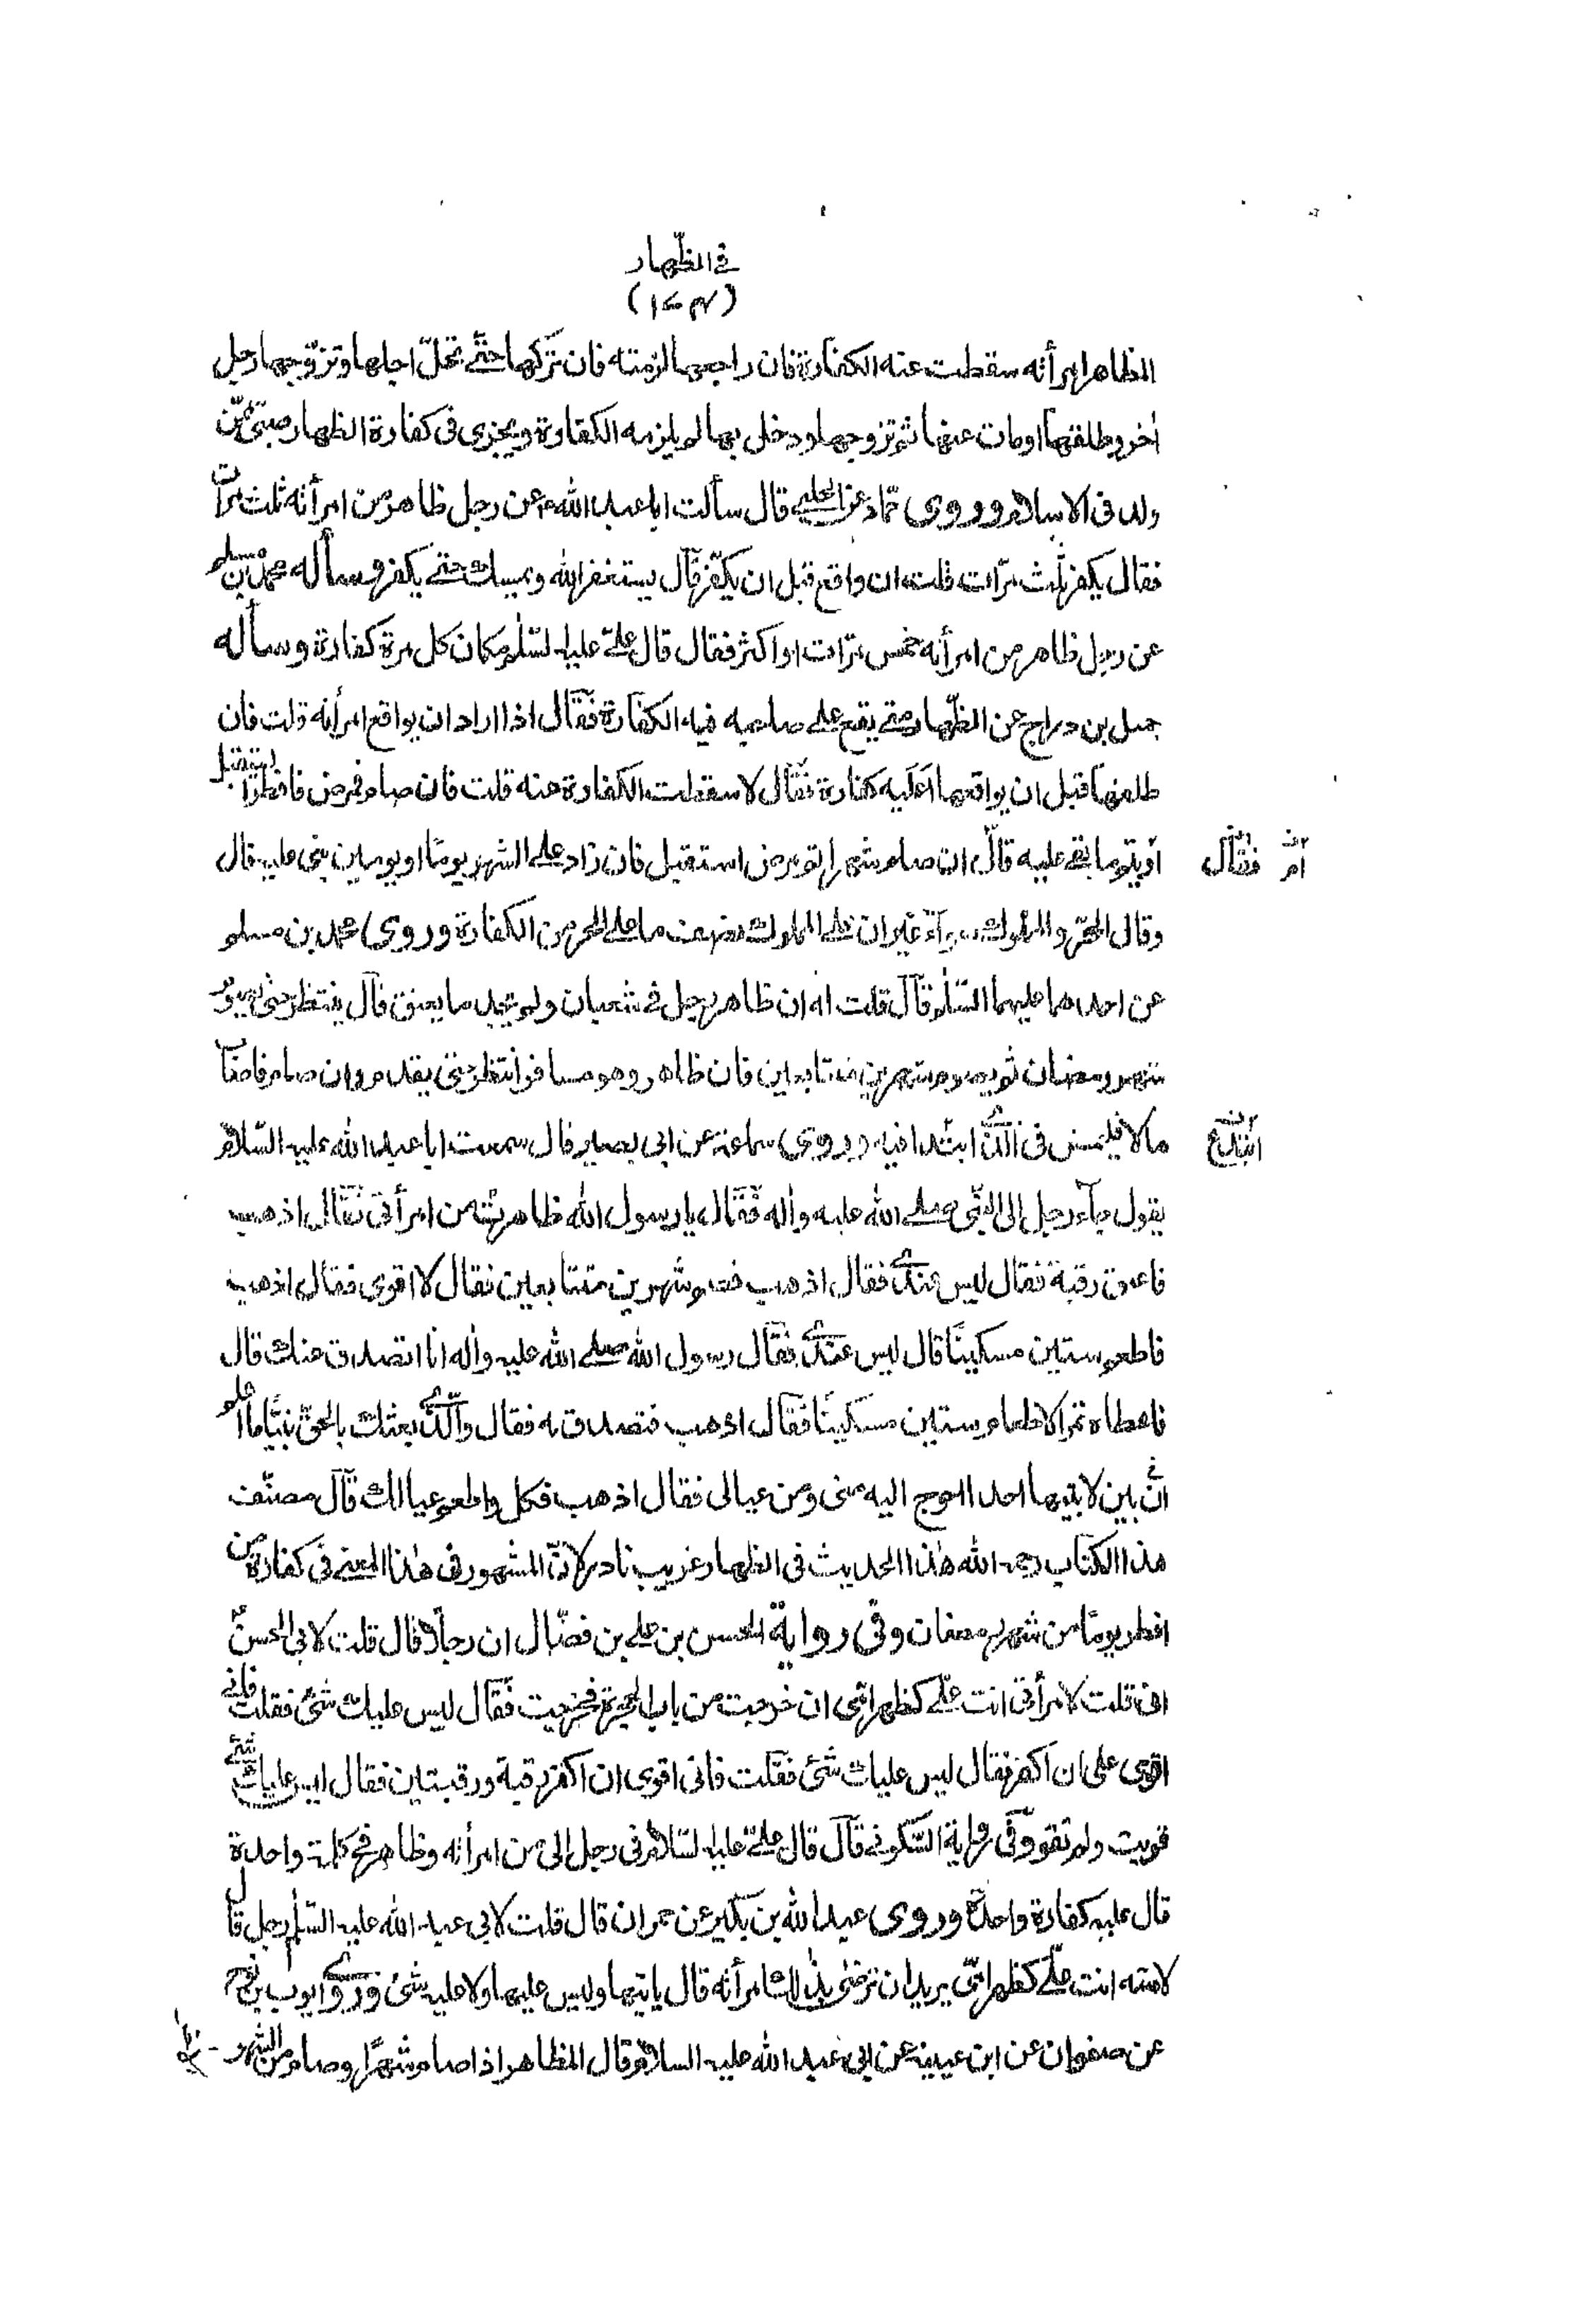 فى الظّهار
المظاهر امرأته سقطت عنه الكفّارة فان راجعها لزمته فان تركها حتّى تحلّ اجلها وتزوّجها رجل
اٰخر وطلقها او مات عنها ثم تزوجها ودخل بها لم يلزمه الكفارة ويجزى فى كفارة الظهار صبىّ ممّن
ولد فى الاسلام وروى حمّاد عن الحلبى قال سألت ابا عبد الله ع عن رجل ظاهر من امرأته ثلث مرّات
فقال يكفر ثلث مرّات قلت ان واقع قبل ان يكفّر قال يستغفر الله ويمسك حتى يكفر وسأله محمّد بن مسلم
عن رجل ظاهر من امرأته خمس مرّات او اكثر فقال قال علىّ عليه السّلم مكان كل مرة كفارة وسأله
جميل بن دراج عن الظّهار متى يقع على صاحبه فيه الكفّارة فقال اذا اراد ان يواقع امرأته قلت فان
طلقها قبل ان يواقعها اعليه كفارة فقال لا سقطت الكفارة عنه قلت فان صام فمرض فافطر أيستقبل
أو يتم ما بقى عليه قال ان صام شهرا ثم مرض استقبل فان زاد على الشهر يومًا او يومين بنى عليه قال
أم فقال
وقال الحرّ والمملوك سواء غير ان على المملوك نصف ما على الحر من الكفارة وروى محمد بن مسلم
عن احدهما عليهما السّلم قال قلت له ان ظاهر رجل فى شعبان ولم يجد ما يعتق قال ينتظر حتى يصوم
شهر رمضان ثم يصوم شهرين متتابعين فان ظاهر وهو مسافر انتظر حتى يقدم وان صام فاصاب
مالا فليمض فى الّذى ابتدأ فيه وروى سماعة عن ابى بصير قال سمعت ابا عبد الله عليه السّلام
يقول جاء رجل الى النبّى صلى الله عليه واٰله فقال يا رسول الله ظاهرت من امرأتى فقال اذهب
فاعتق رقبة فقال ليس عندى فقال اذهب فصم شهرين متتابعين فقال لا اقوى فقال اذهب
فاطعم ستين مسكينًا قال ليس عندى فقال رسول الله صلى الله عليه واٰله انا اتصدق عنك قال
فاعطاه تمرا لاطعام ستين مسكينًا فقال اذهب فتصدق به فقال والّذى بعثك بالحقّ نبيًّا ما اعلم
انّ بين لابتيها احدا احوج اليه منى ومن عيالى فقال اذهب فكل واطعم عيالك قال مصنّف
هذا الكتاب رحمه الله هٰذا الحديث فى الظهار غريب نادر لانّ المشهور فى هٰذا المعنى فى كفارة من
افطر يومًا من شهر رمضان وفى رواية الحسن بن على بن فضّال ان رجلًا قال قلت لابى الحسن ع
انى قلت لامرأتى انت علىّ كظهر امّى ان خرجت من باب الحجرة فخرجت فقال ليس عليك شئ فقلت فانى
اقوى على ان اكفر فقال ليس عليك شئ فقلت فانى اقوى ان اكفر رقبة ورقبتين فقال ليس عليك شئ
قويت ولم تقو وفى رواية السّكونى قال قال علىّ عليه السّلام فى رجل الى من امرأته وظاهر فى كلمة واحدة
قال عليه كفارة واحدة وروى عبد الله بن بكير عن حمران قال قلت لابى عبد الله عليه السّلم رجل قال
لامته انت علىّ كظهر امّى يريد ان ترضى بذٰلك امرأته قال ياتيها وليس عليها ولا عليه شئ وروى ايوب بن نوح
عن صفوان عن ابن عيينة عن ابى عبد الله عليه السلام قال المظاهر اذا صام شهرًا وصام من الشهر